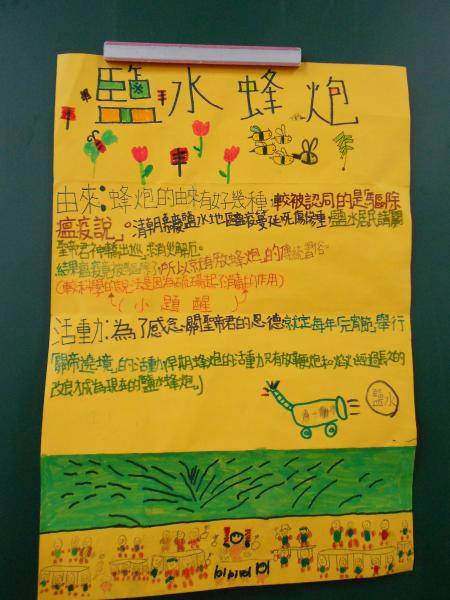 鹽水蜂炮
由來:蜂炮的由來有好幾種,較被認同的是「驅除
瘟疫說」。清朝鹽水地區瘟疫蔓延死傷慘重,鹽水居民請關
聖帝君神轎出巡,求消災解厄。
結果瘟疫竟被驅除了,所以就有放蜂炮的傳統習俗。
(較科學的說法是因為硫磺起了消毒的作用)
(小題醒)
活動:為了感念關聖帝君的恩德就定每年「元宵節」舉行
「關帝遶境」的活動,早期蜂炮的活動只有放鞭炮和
改良才成為現在的鹽水蜂炮。
鹽水